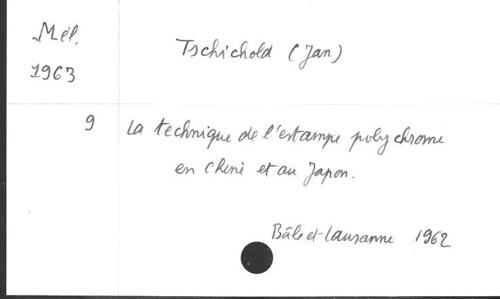 Mél.
1963
Tschichold (Jan)
9
La technique de l'estampe polychrome
en Chine et au Japon.
Bâle et Lausanne 1962